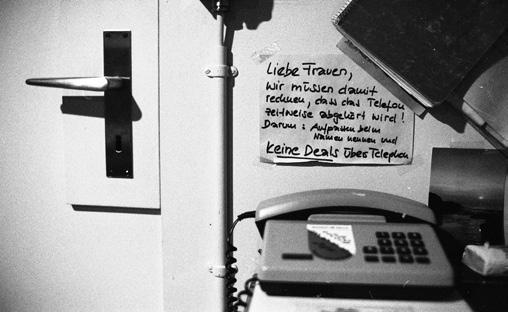 Liebe Frauen,
wir müssen damit
rechnen, dass das Telefon
zeitweise abgehört wird!
Darum: Aufpassen beim
Namen nennen und
Keine Deals übers Telephon